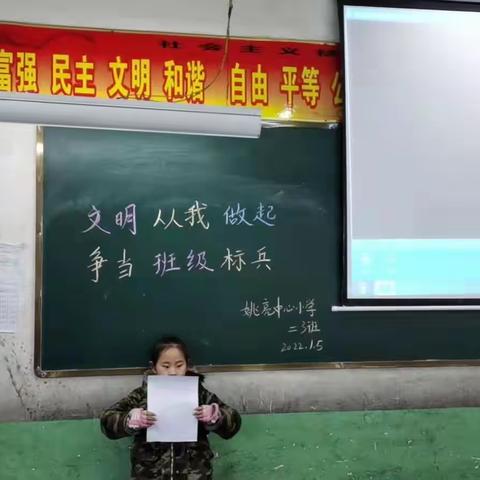 社会主义核
富强 民主 文明 和谐 自由 平等 公
文明 从我 做起
争当 班级 标兵
姚亮中心小学
二3班
2022.1.5